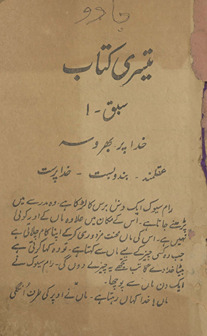 جادو
تیسری کتاب
سبق - ۱
خدا پر بھروسہ
عقلمند - بندوبست - خدا پرست
رام سیوک ایک دس برس کا لڑکا ہے۔ وہ مدرسے میں
پڑھنے جاتا ہے۔ اس کے مکان میں علاوہ ماں کے اور کوئی
نہیں ہے۔ اس کی ماں محنت مزدوری کر کے اپنا کام چلاتی ہے
جب وہ کسی چیز کے لئے ماں سے کہتا ہے۔ تو وہ کہا کرتی ہے
بیٹا خدا دے گا تب تجھے یہ چیز لے دوں گی۔ رام سیوک نے
ایک دن ماں سے پوچھا۔
ماں! خدا کہاں رہتا ہے۔ ماں نے اوپر کی طرف انگلی